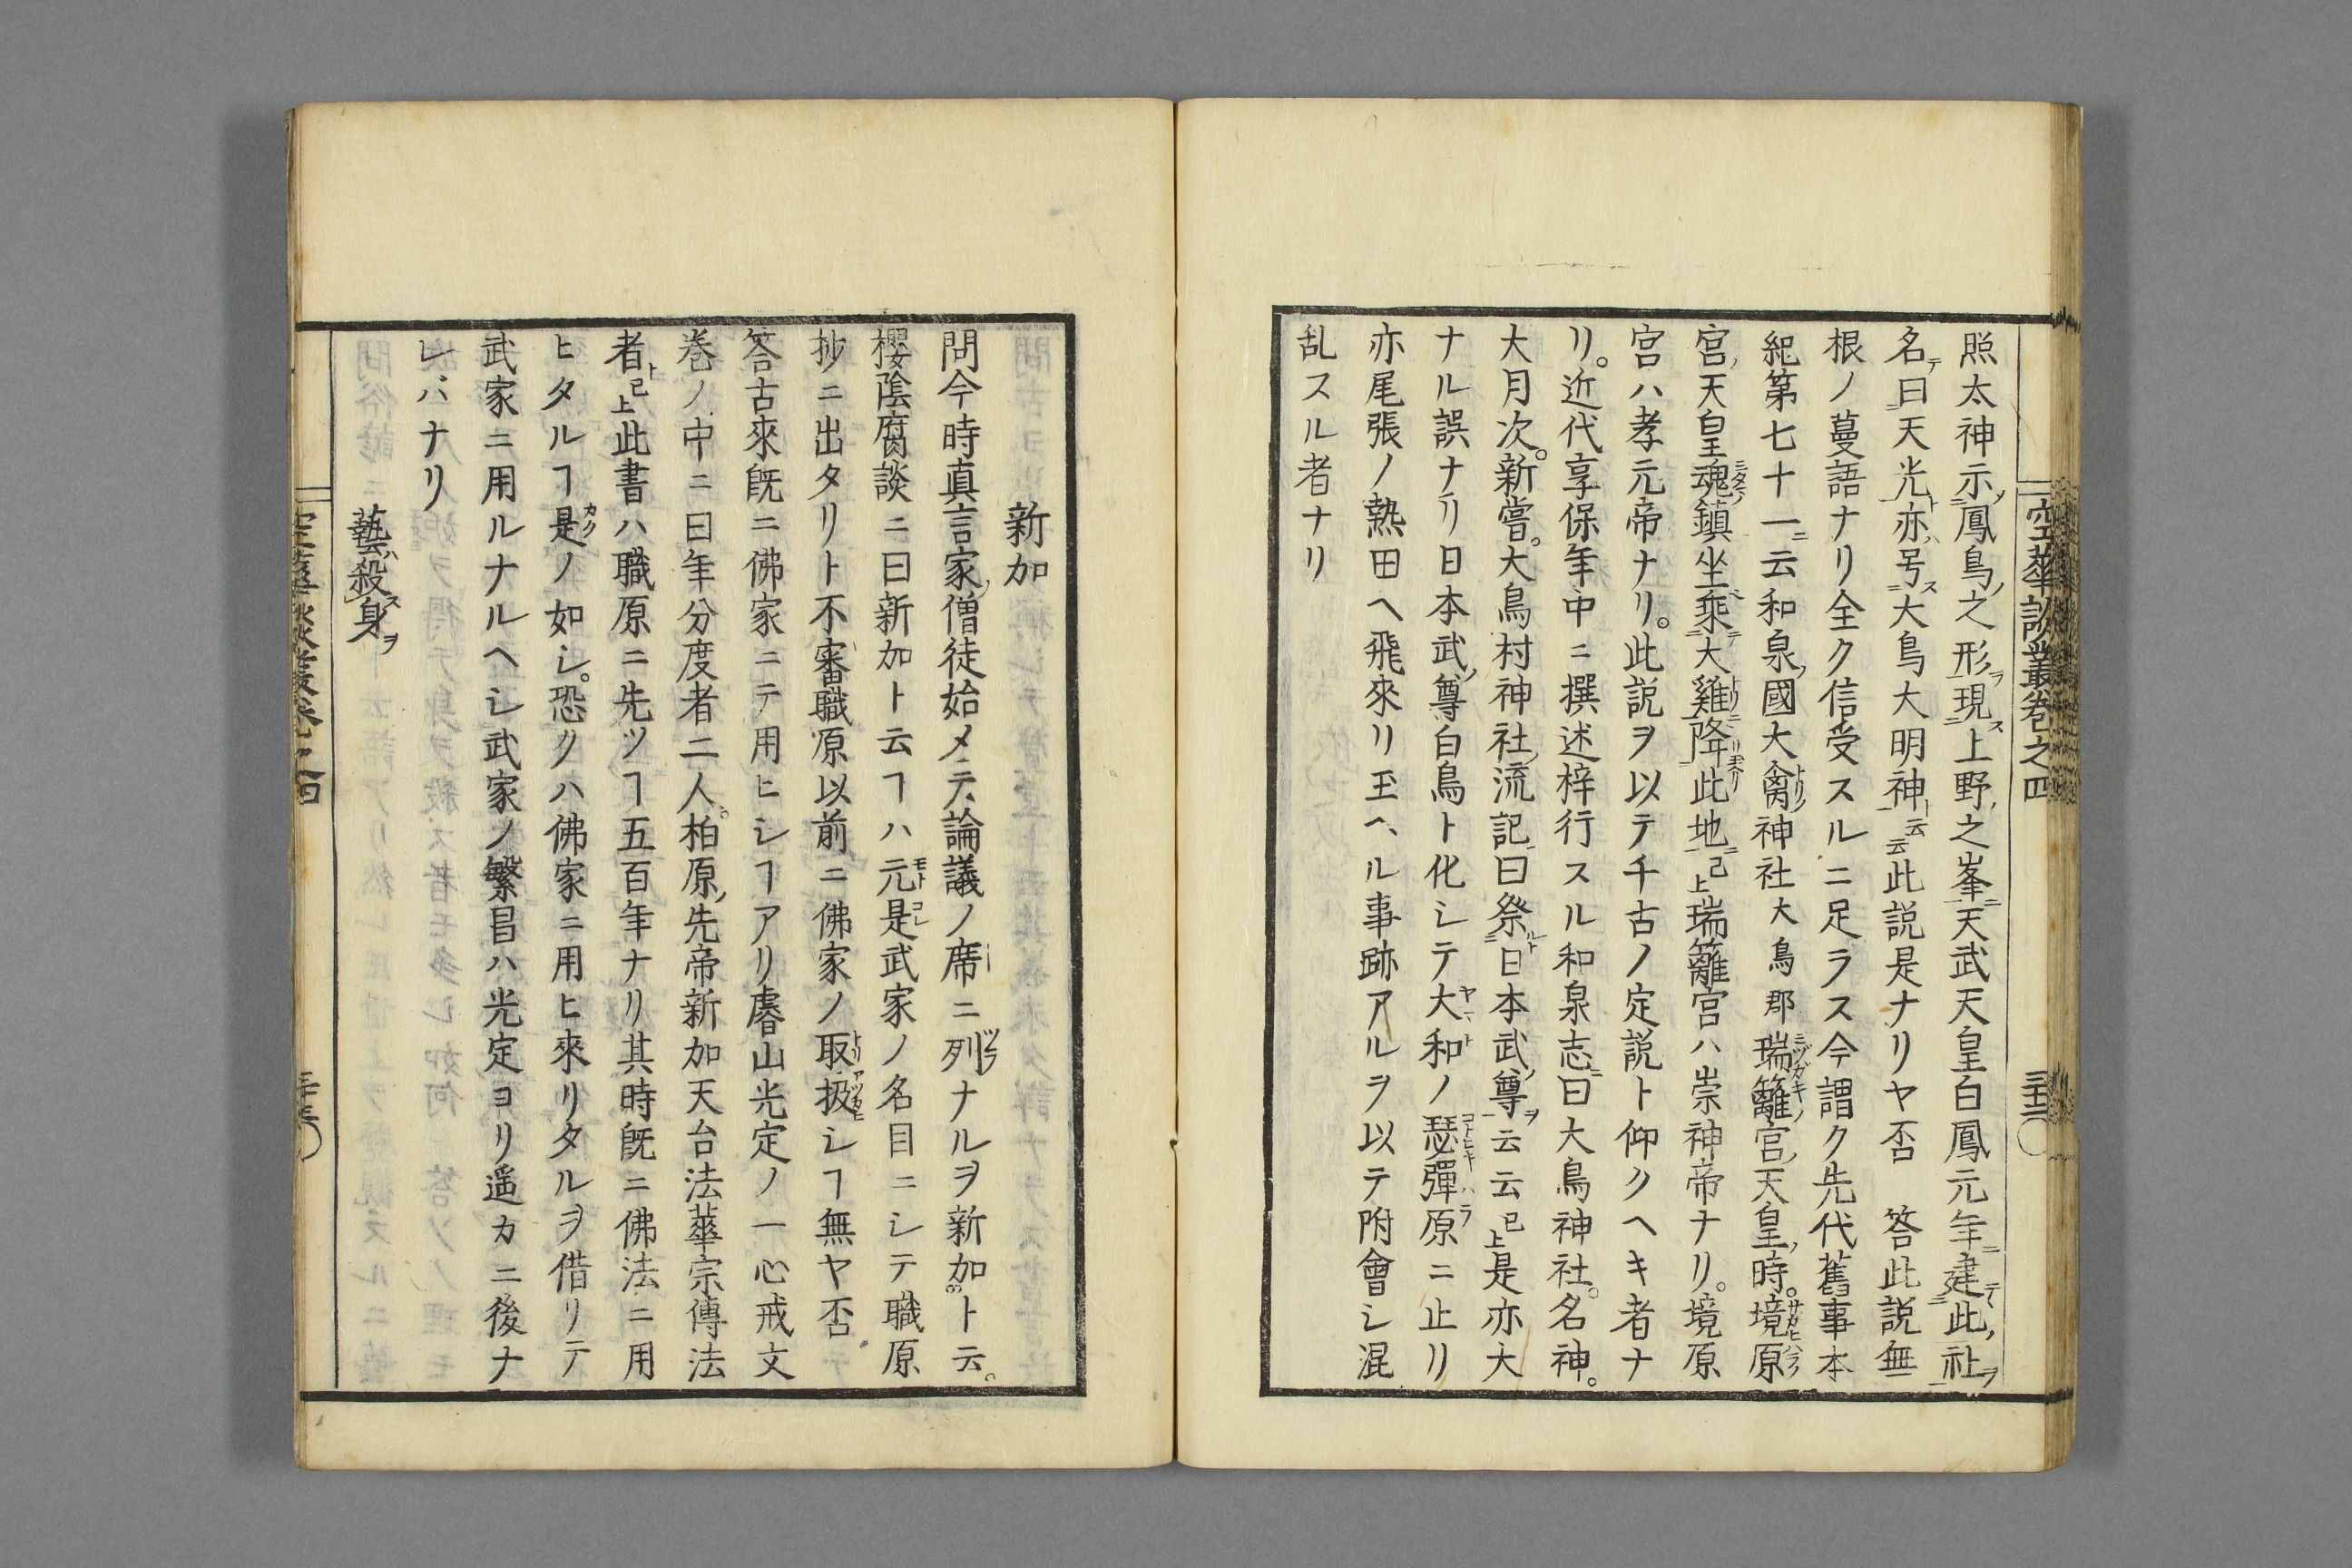 空華談叢卷之四
照太神示鳳鳥之形現上野之峯天武天皇白鳳元年建此社
名曰天光亦号大鳥大明神云云此説是ナリヤ否　答此説無
根ノ蔓語ナリ全ク信受スルニ足ラス今謂ク先代舊事本
紀第七十一云和泉國大禽神社大鳥郡瑞籬宮天皇時。境原
宮天皇魂鎮坐乘大雞降此地已上瑞籬宮ハ崇神帝ナリ。境原
宮ハ孝元帝ナリ。此説ヲ以テ千古ノ定説ト仰クヘキ者ナ
リ。近代享保年中ニ撰述梓行スル和泉志曰大鳥神社。名神。
大月次。新嘗。大鳥村神社流記曰祭日本武尊云云已上是亦大
ナル誤ナリ日本武尊白鳥ト化シテ大和ノ瑟彈原ニ止リ
亦尾張ノ熱田ヘ飛來リ玉ヘル事跡アルヲ以テ附會シ混
乱スル者ナリ
新加
問今時真言家僧徒始メテ論議ノ席ニ列ナルヲ新加ト云。
櫻陰腐談ニ曰新加ト云ヿハ元是武家ノ名目ニシテ職原
抄ニ出タリト不審職原以前ニ佛家ノ取扱シヿ無ヤ否
答古來既ニ佛家ニテ用ヒシヿアリ睿山光定ノ一心戒文
卷ノ中ニ曰年分度者二人。柏原先帝新加天台法華宗傳法
者已上此書ハ職原ニ先ツヿ五百年ナリ其時既ニ佛法ニ用
ヒタルヿ是ノ如シ。恐クハ佛家ニ用ヒ來リタルヲ借リテ
武家ニ用ルナルヘシ武家ノ繁昌ハ光定ヨリ遥カニ後ナ
レバナリ
藝殺身